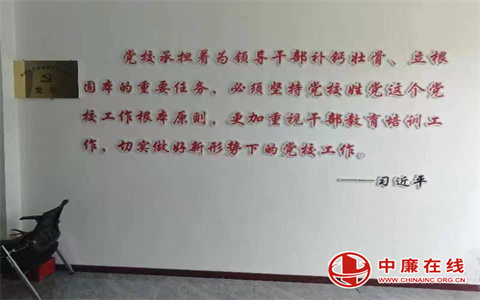 党校承担着为领导干部补钙壮骨、立根
固本的重要任务，必须坚持党校姓党这个党
校工作根本原则，更加重视干部教育培训工
作，切实做好新形势下的党校工作。
——习近平
中廉在线
WWW.CHINAINC.ORG.CN